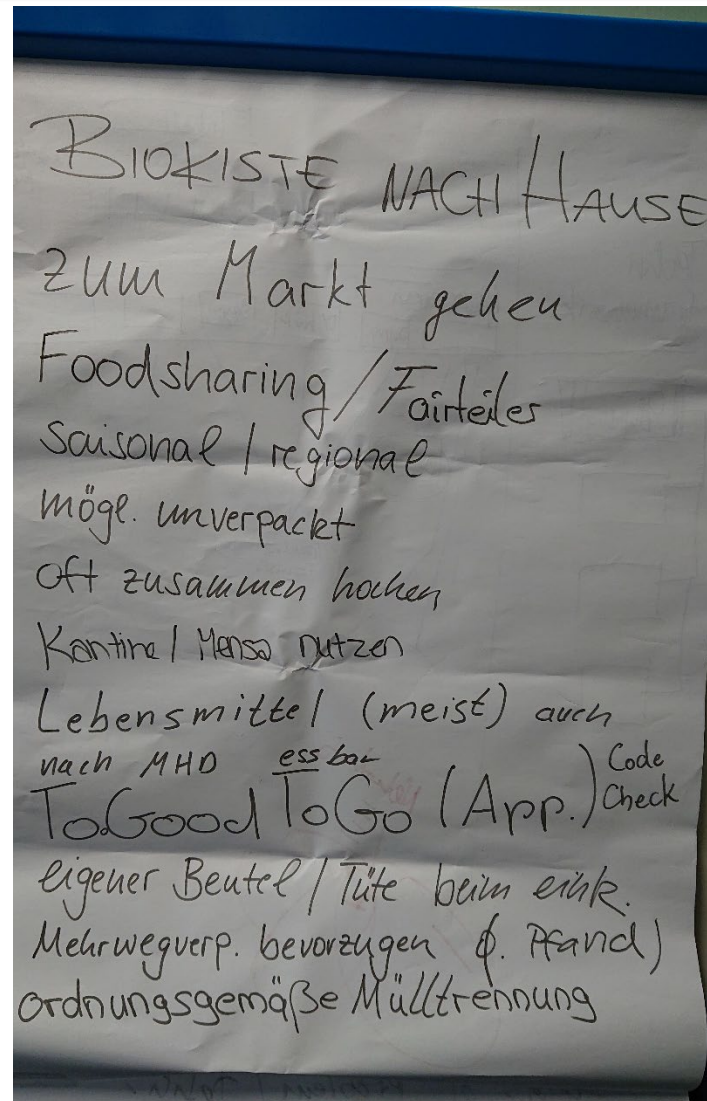 BIOKISTE NACH HAUSE
zum Markt gehen
Foodsharing / Fairteiler
saisonal / regional
mögl. unverpackt
oft zusammen kochen
Kantine / Mensa nutzen
Lebensmittel (meist) auch
nach MHD essbar
ToGoodToGo (App.) Code
Check
eigener Beutel / Tüte beim eink.
Mehrwegverp. bevorzugen Pfand)
ordnungsgemäße Mülltrennung